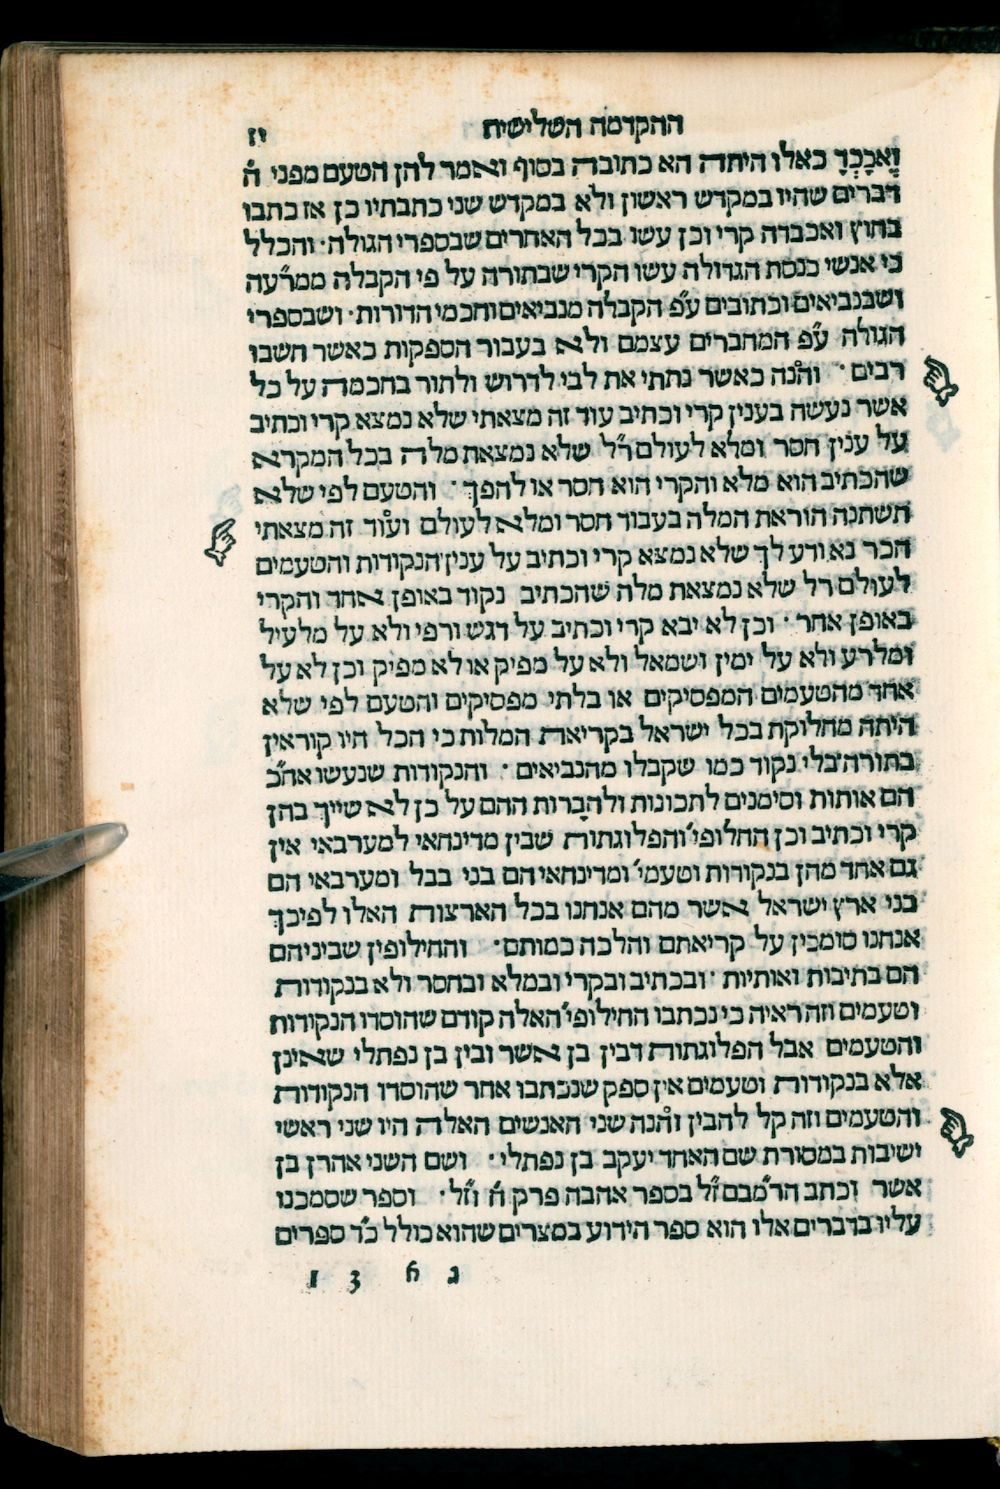 ההקדמה השלישית יז
וְאֶכָּבְדָ כאלו היתה הא כתובה בסוף ואמר להן הטעם מפני ה֗
דברים שהיו במקדש ראשון ולא במקדש שני כתבתיו כן אז כתבו
בחוץ ואכבדה קרי וכן עשו בכל האחרים שבספרי הגולה· והכלל
כי אנשי כנסת הגדולה עשו הקרי שבתורה על פי הקבלה ממר״עה
ושבנביאים וכתובים ע״פ הקבלה מנביאים וחכמי הדורות· ושבספרי
הגולה ע״פ המחברים עצמם ולא בעבור הספקות כאשר חשבו
רבים· והנה כאשר נתתי את לבי לדרוש ולתור בחכמה על כל
אשר נעשה בענין קרי וכתיב עוד זה מצאתי שלא נמצא קרי וכתיב
על ענין חסר ומלא לעולם ר״ל שלא נמצאת מלה בכל המקרא
שהכתיב הוא מלא והקרי הוא חסר או להפך· והטעם לפי שלא
תשתנה הוראת המלה בעבוד חסר ומלא לעולם ועוד זה מצאתי
הכר נא ודע לך שלא נמצא קרי וכתיב על ענין הנקודות והטעמים
לעולם רל שלא נמצאת מלה שהכתיב נקוד באופן אחד והקרי
באופן אחר· וכן לא יבא קרי וכתיב על דגש ורפי ולא על מלעיל
ומלרע ולא על ימין ושמאל ולא על מפיק או לא מפיק וכן לא על
אחד מהטעמים המפסיקים או בלתי מפסיקים והטעם לפי שלא
היתה מחלוקת בכל ישראל בקריאת המלות כי הכל היו קוראין
בתורה בלי נקוד כמו שקבלו מהנביאים· והנקודות שנעשו אח״כ
הם אותות וסימנים לתכונות ולהברות ההם על כן לא שייך בהן
קרי וכתיב וכן החלופי׳ והפלוגתות שבין מדינחאי למערבאי אין
גם אחד מהן בנקודות וטעמי׳ ומדינחאי הם בני בבל ומערבאי הם
בני ארץ ישראל אשר מהם אנחנו בכל הארצות האלו לפיכך
אנחנו סומכין על קריאתם והלכה כמותם· והחילופין שביניהם
הם בתיבות ואותיות· ובכתיב ובקרי ובמלא ובחסר ולא בנקודות
וטעמים וזה ראיה כי נכתבו החילופי׳ האלה קודם שהוסדו הנקודות
והטעמים אבל הפלוגתות דבין בן אשר ובין בן נפתלי שאינן
אלא בנקודות וטעמים אין ספק שנכתבו אחר שהוסדו הנקודות
והטעמים וזה קל להבין והנה שני האנשים האלה היו שני ראשי
ישיבות במסורת שם האחד יעקב בן נפתלי· ושם השני אהרן בן
אשר וכתב הר״מבם ז״ל בספר אהבה פרק ח֗ וז״ל· וספר שסמכנו
עליו בדברים אלו הוא ספר הידוע במצרים שהוא כולל כ״ד ספרים
ג א 3 1